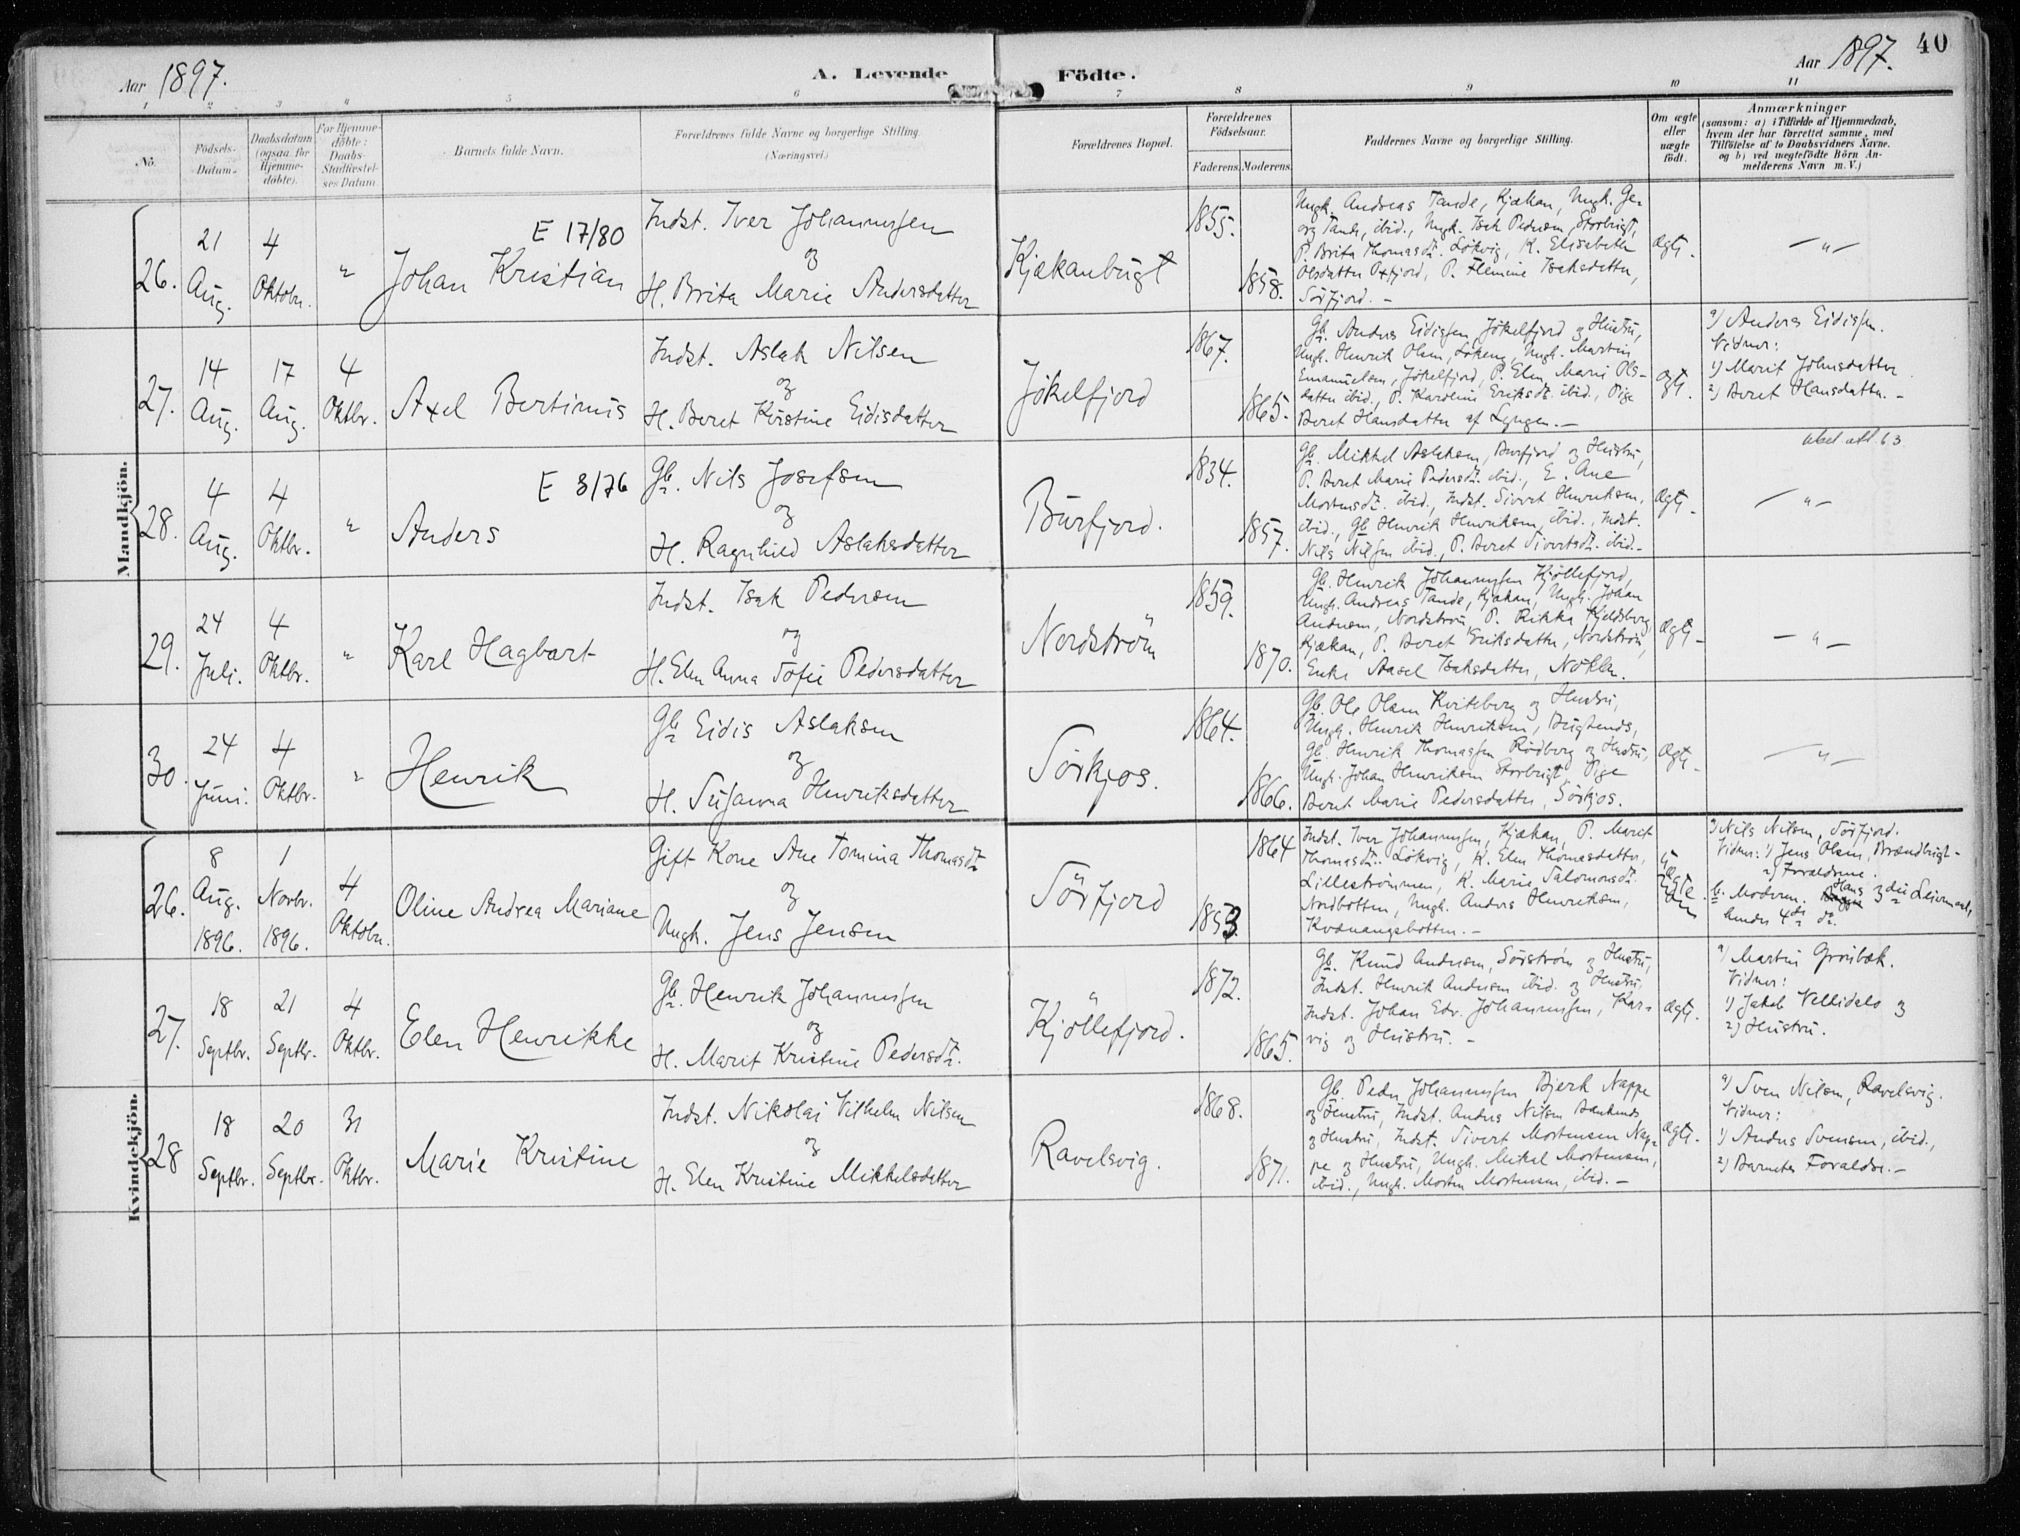 Aar 1897.
A. Levende Födte.
Aar 1897.
40
1 2 3 4 5 6 7 8 9 10 11
No.
Födsels-
Datum.
Daabsdatum
(ogsaa for
Hjemme-
döbte).
For Hjemme-
döbte:
Daabs-
Stadfæstel-
ses Datum
Barnets fulde Navn.
Forældrenes fulde Navne og borgerlige Stilling.
(Næringsvei.)
Forældrenes Bopæl.
Forældrenes
Födselsaar.
Faderens. Moderens.
Faddernes Navne og borgerlige Stilling.
Om ægte
eller
uægte
födt.
Anmærkninger
(saasom: a) i Tilfælde af Hjemmedaab,
hvem der har forrettet samme, med
Tilföielse af to Daabsvidners Navne.
og b) ved uegtefödte Börn An-
melderens Navn m. V.)
Mandkjön.
26.
21
Aug.
4
Oktobr.
"
E 17/80
Johan Kristian
Indst. Iver Johannessen
og
H. Brita Marie Andersdatter
Kjækanbugt
1855.
1858.
Ungk. Andreas Tande, Kjækan, Ungk. Ge-
org Tande, ibid., Ungk. Isak Pedersen, Storbugt,
P. Brita Thomasdr. Lökvig, K. Elisabeth
Olsdatter Oxfjord, P. Flemine Isaksdatter,
Sörfjord. -
Ægt.
- " -
27.
14
Aug.
17
Aug.
4
Oktbr.
Axel Bertinus
Indst. Aslak Nilsen
og
H. Beret Kristine Eidisdatter
Jökelfjord
1867.
1865.
Gb. Anders Eidissen Jökelfjord og Hustru,
Ungk. Henrik Olsen, Ungk. Martin
Emanuelsen, Jökelfjord, P. Elen Marie Ols-
datter ibid., P. Karoline Eriksdr. ibid., Pige
Beret Hansdatter af Lyngen. -
Ægt.
a) Anders Eidissen.
Vidner:
1) Marit Johnsdatter
2) Beret Hansdatter. -
28.
4
Aug.
4
Oktbr.
"
E 3/76
Anders
Gb. Nils Josefsen
og
H. Ragnhild Aslaksdatter
Burfjord.
1834.
1857.
Gb. Mikkel Aslaksen, Burfjord og Hustru,
P. Beret Marie Pedersdr. ibid., E. Ane
Mortensdr. ibid., Indst. Sivert Henriksen,
ibid., Gb. Henrik Henriksen, ibid., Indst.
Nils Nilsen ibid., P. Beret Sivertsdr. ibid. -
Ægt.
- " -
29.
24
Juli.
4
Oktbr.
"
Karl Hagbart
Indst. Isak Pedersen
og
H. Elen Anna Sofie Pedersdatter
Nordström
1859.
1870.
Gb. Henrik Johannessen Kjöllefjord,
Ungk. Andreas Tande, Kjækan, Ungk. Johan
Andersen, Nordström, P. Rikka Kjeldsberg
Kjækan, P. Beret Eriksdatter, Nordström,
Enke Aasel Isaksdatter, Noklen.
Ægt.
- " -
30.
24
Juni.
4
Oktbr.
"
Henrik
Gb. Eidis Aslaksen
og
H. Susanna Henriksdatter
Sörkjos.
1864.
1866.
Gb. Ole Olsen Kviteberg og Hustru,
Ungk. Henrik Henriksen, Bugtenes,
Gb. Henrik Thomassen Rödberg og Hustru,
Ungk. Johan Henriksen Storbugt, Pige
Beret Marie Pedersdatter, Sörkjos.
Ægt.
- " -
Kvindekjön.
26.
8
Aug.
1896.
1
Novbr.
1896.
4
Oktobr.
Oline Andrea Mariane
Gift Kone Ane Tomina Thomasdr
og
Ungk. Jens Jensen
Sörfjord
1864
1853
Indst. Iver Johannessen, Kjækan, P. Marit
Thomasdr. Lökvig, K. Elen Thomasdatter,
Lilleströmmen, K. Marie Salomonsdr.
Nordbotten, Ungk. Anders Henriksen,
Kvænangsbotten. -
a) Nils Nilsen, Sörfjord.
Vidner: 1) Jens Olsen, Brændbugt -
2) Forældrene.
b. Moderen. Hans 3die Leiermaal,
hendes 4de do.
27.
18
Septbr.
21
Septbr.
4
Oktbr.
Elen Henrikke
Gb. Henrik Johannessen
og
H. Marit Kristine Pedersdr.
Kjöllefjord.
1872.
1865.
Gb. Knud Andersen, Sörström og Hustru,
Indst. Henrik Andersen ibid. og Hustru,
Indst. Johan Edv. Johannessen, Kar-
vig og Hustru. -
Ægt.
a) Martin Grönbæk.
Vidner:
1) Jakob Nellidalo og
2) Hustru.
28
18
Septbr.
20
Septbr.
31
Oktbr.
Marie Kristine
Indst. Nikolai Vilhelm Nilsen
og
H. Elen Kristine Mikkelsdatter
Ravelsvig.
1868.
1871.
Gb. Peder Johannessen Bjerk Nappe
og Hustru, Indst. Anders Nilsen
og Hustru, Indst. Sivert Mortensen Nap-
pe og Hustru, Ungk. Mikal Mortensen,
ibid., Ungk. Morten Mortensen, ibid. -
Ægt.
a) Sven Nilsen, Ravelsvig.
Vidner:
1) Anders Svensen, ibid.,
2) Barnets Forældre. -